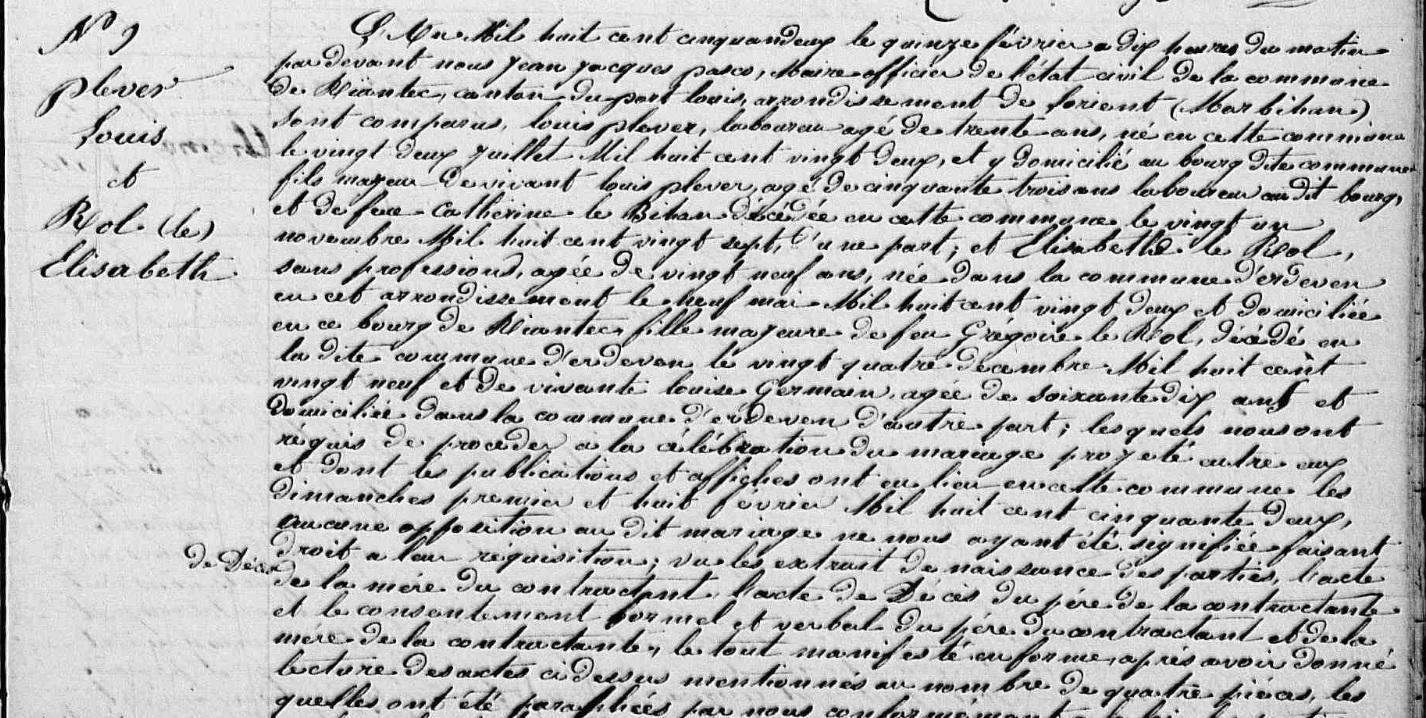 N° 9
plever
Louis
et
Rol (le)
Elisabeth
L'An Mil huit cent cinquandeux le quinze février a dix heures du matin
par devant nous Jean Jacques pasco, Maire officier de l'état civil de la commune
de Riantec, canton du port louis, arrondissement de Lorient (Morbihan)
sont comparus, louis plever, laboureur agé de trente ans, né en cette commune
le vingt deux Juillet Mil huit cent vingt deux, et y domicilié au bourg dite commune
fils majeur de vivant louis plever, agé de cinquante trois ans laboureur au dit bourg,
et de feue Catherine le Bihan décédée en cette commune le vingt un
novembre Mil huit cent vingt sept, d'une part; et Elisabeth le Rol,
sans professions, agée de vingt neuf ans, née dans la commune d'erdeven
en cet arrondissement le neuf mai Mil huit cent vingt deux et domiciliée
en ce bourg de Riantec, fille majeure de feu Gregoire le Rol, décédé en
la dite commune d'erdeven le vingt quatre décembre Mil huit cent
vingt neuf et de vivante louise Germain, agée de soixante dix ans et
domiciliée dans la commune d'erdeven d'autre part; lesquels nous ont
requis de proceder a la célébration du mariage projeté entre eux
et dont les publications et affiches ont eu lieu en cette commune les
dimanches premier et huit février Mil huit cent cinquante deux,
aucune opposition au dit mariage ne nous ayant été signifiée faisant
droit a leur requisition; vu les extrait de naissance des parties, l'acte
de Décès
de la mère du contractant l'acte de Décès du père de la contractante
et le consentement formel et verbal du père du contractant et de la
mère de la contractante, le tout manifesté en forme, après avoir donné
lecture des actes ci dessus mentionnés au nombre de quatre pièces, les
quelles ont été paraphées par nous conformément a